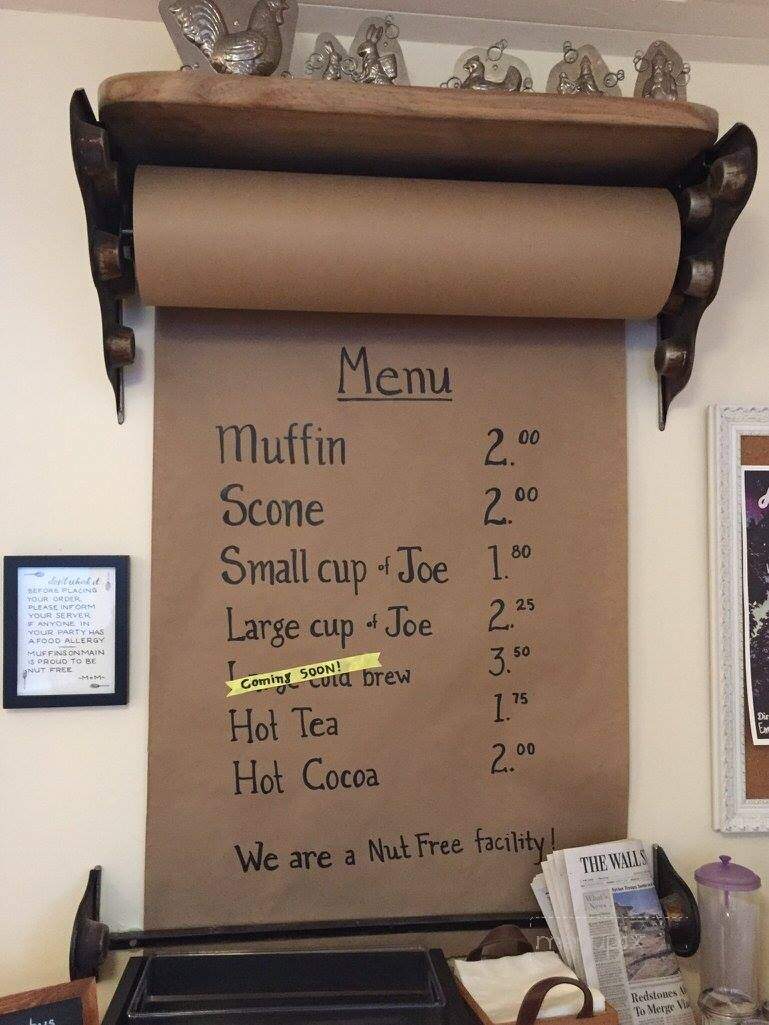 Menu
Muffin 2.00
Scone 2.00
Small cup of Joe 1.80
Large cup of Joe 2.25
Coming SOON!
cold brew 3.50
Hot Tea 1.75
Hot Cocoa 2.00
We are a Nut Free facility!
don't nut it
BEFORE PLACING
YOUR ORDER,
PLEASE INFORM
YOUR SERVER
IF ANYONE IN
YOUR PARTY HAS
A FOOD ALLERGY
MUFFINS ON MAIN
IS PROUD TO BE
NUT FREE
~M+M~
THE WALL S
What's
News
Redstones
To Merge Vi